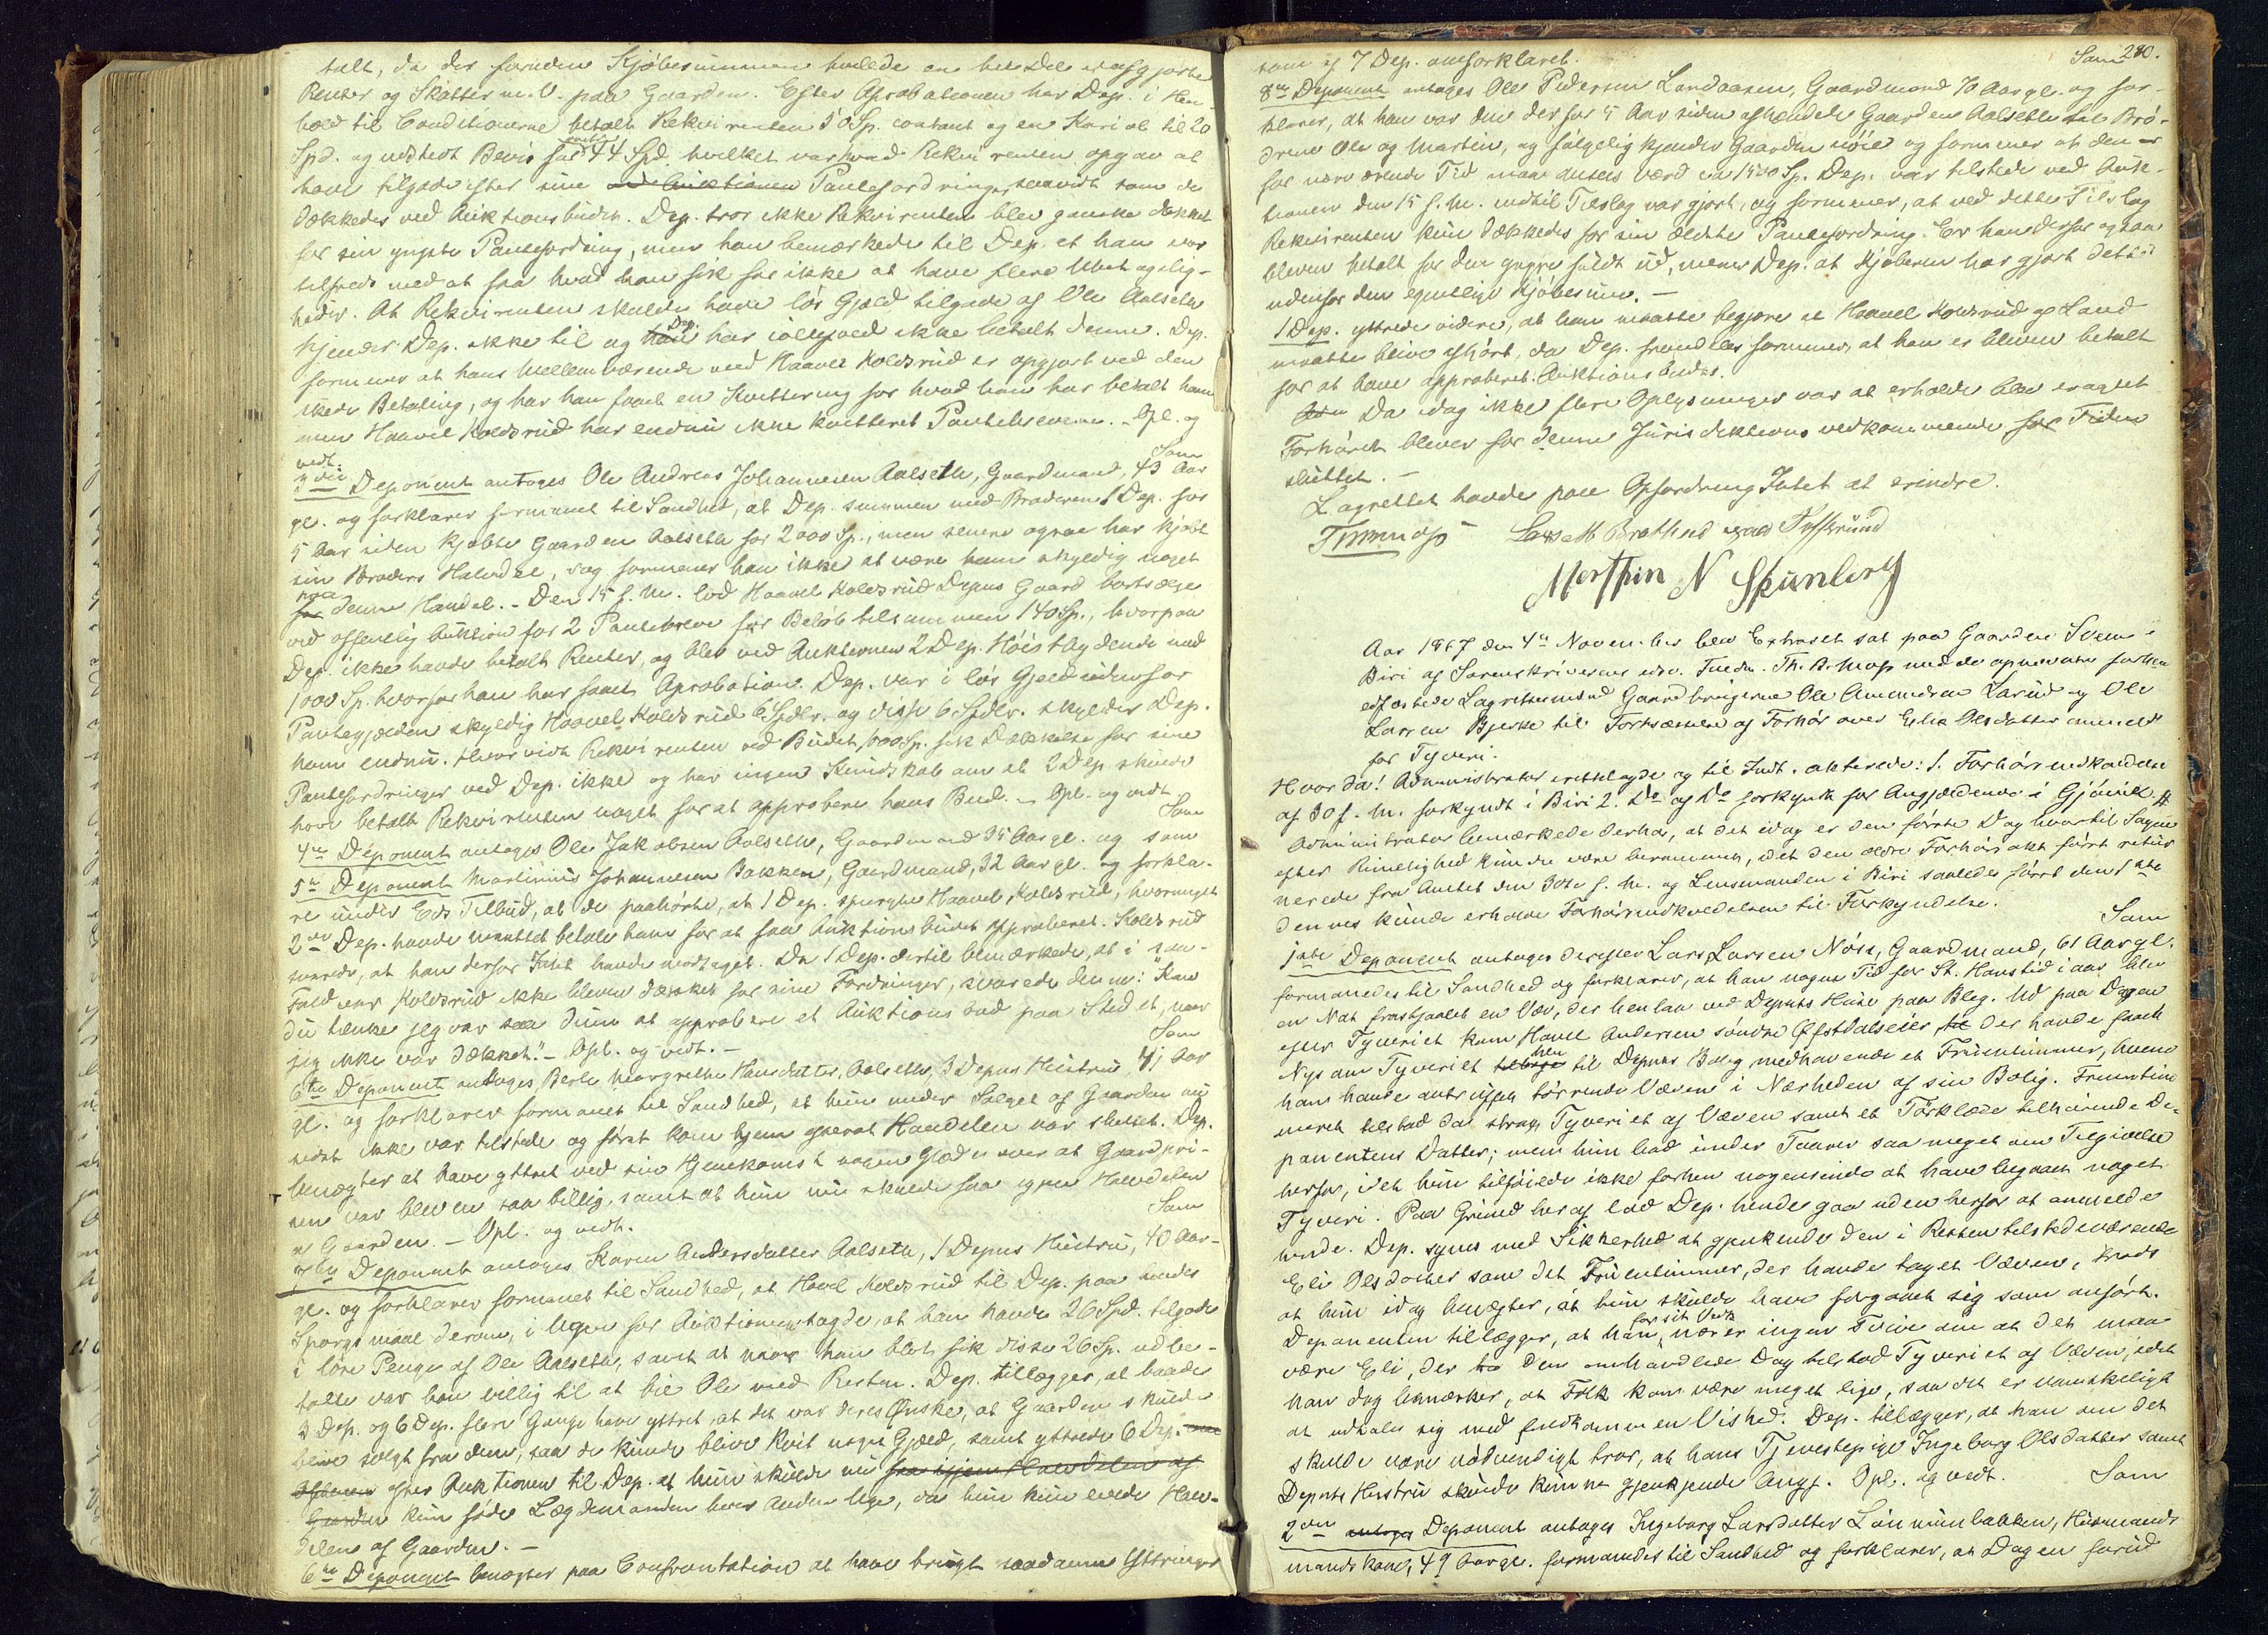 talt, da der foruden Kjöbesummen heftede en hel Del uafgjorte
Renter og Skatter m.V. paa Gaarden. Efter Aprobationen har Dep. i Hen-
hold til Conditionerne betalt Rekvirenten 50 Sp. contant og en Kari ol til 20
Spd. og udstedt Bevis for 44 Spd. hvilket var hvad Rekvirenten opgav at
have tilgode efter sine ved Auktionen Pantefordringer, saavidt som de
dækkedes ved Auktionsbudet. Dep. tror ikke Rekvirenten blev ganske dækket
for sin yngste Pantefordring, men han bemærkede til Dep. at han var
tilfreds med at faa hvad han fik for ikke at have flere Ubehagelig-
heder. At Rekvirenten skulde have lös Gjæld tilgode af Ole Aalseth
kjender Dep. ikke til og han Dep. har iallefald ikke betalt denne. Dep.
formener at hans Mellemværende med Haavel Koldsrud er opgjort ved den
skede Betaling, og har han faaet en Kvittering for hvad han har betalt ham
men Haavel Koldsrud har endnu ikke kvitteret Pantebrevene. - Opl. og
vedt. Som
3die Deponent antoges Ole Andreas Johannesen Aalseth, Gaardmand, 43 Aar
gl. og forklarer formanet til Sandhed, at Dep. sammen med Broderen 1 Dep. for
5 Aar siden kjöbte Gaarden Aalseth for 2000 Sp., men senere ogsaa har kjöbt
sin Broders Halvdel, dog formener han ikke at være ham skyldig noget
paa for denne Handel. - Den 15 f. M. lod Haavel Koldsrud Depns Gaard bortsælge
ved offentlig Auktion for 2 Pantebreve for Belöb tilsammen 140 Sp., hvorpaa
Dep. ikke havde betalt Renter, og blev ved Auktionen 2 Dep. Höistbydende med
1000 Sp. hvorfor han har faaet Aprobation. Dep. var i lös Gjæld udenfor
Pantegjælden skyldig Haavel Koldsrud 6 Spdlr. og disse 6 Spdlr. skylder Dep.
ham endnu. Hvorvidt Rekvirenten ved Budet 1000 Sp. fik Dækkelse for sine
Pantefordringer ved Dep. ikke og har ingen Kundskab om at 2 Dep. skulde
have betalt Rekvirenten noget for at approbere hans Bud. - Opl. og vedt.
Som
4de Deponent antoges Ole Jakobsen Aalseth, Gaardmand 35 Aar gl. og som
5te Deponent Martinius Johannesen Bakken, Gaardmand, 32 Aar gl. og forkla-
re under Eds Tilbud, at de paahörte, at 1 Dep. spurgte Haavel Koldsrud, hvormeget
2den Dep. havde maattet betale ham for at faa Auktionsbudet approberet. Koldsrud
svarede, at han derfor Intet havde modtaget. Da 1 Dep. dertil bemærkede, at i saa-
Fald var Koldsrud ikke bleven dækket for sine Fordringer, svarede denne: "Kan
du tænke jeg var saa dum at approbere et Auktionsbud paa Stedet, naar
jeg ikke var dækket." - Opl. og vedt. - Som
6te Deponent antoges Berte Margrethe Hansdatter Aalseth, 3 Depns Hustru, 41 Aar
gl. og forklarer formanet til Sandhed, at hun under Salget af Gaarden nu
sidst ikke var tilstede og först kom hjem efterat Handelen var sluttet. Dep.
benægter at have yttret ved sin Hjemkomst nogen Glæde over at Gaardpri-
sen var bleven saa billig, samt at hun nu skulde faa igjen Halvdelen
af Gaarden. - Opl. og vedt. Som
7de Deponent antoges Karen Andersdatter Aalseth, 1 Depns Hustru, 40 Aar
gl. og forklarer formanet til Sandhed, at Havel Koldsrud til Dep. paa hendes
Spörgsmaal derom, i Ugen för Auktionen sagde, at han havde 26 Spd. tilgode
i löse Penge af Ole Aalseth, samt at naar han blot fik disse 26 Sp. udbe-
talte var han villig til at bie Ole med Resten. Dep. tillægger, at baade
3 Dep. og 6 Dep. flere Gange have yttret, at det var deres Ønske, at Gaarden skulde
blive solgt fra dem, saa de kunde blive kvit nogen Gjæld, samt yttrede 6 Dep.
efter Auktionen til Dep. at hun skulde nu faa igjen Halvdelen af
Gaarden kun föde Lægdemanden hver anden Uge, da hun kun eiede Halv-
delen af Gaarden. -
6te Deponent benægter paa Confrontation at have brugt saadanne Yttringer
280.
som af 7 Dep. omforklaret. Som
8de Deponent antoges Ole Pedersen Landaasen, Gaardmand 70 Aar gl. og for-
klarer, at han var den der for 5 Aar siden afhændede Gaarden Aalseth til Brö-
drene Ole og Martin, og fölgelig kjender Gaarden nöie og formener at den
for nærværende Tid maa ansees værd ca 1500 Sp. Dep. var tilstede ved Auk-
tionen den 15 f. M. indtil Tilslag var gjort, og formener, at ved dette Tilslag
Rekvirenten kun dækkedes for sin ældste Pantefordring. Er han derfor ogsaa
bleven betalt for den yngre fuldt ud, mener Dep. at Kjöberen har gjort dette
udenfor den egentlige Kjöbesum. -
1 Dep. yttrede videre, at han maatte begjære at Haavel Koldsrud og Land
maatte blive afhört, da Dep. fremdeles formener, at han er bleven betalt
for at have approberet Auktionsbudet.
Da idag ikke flere Oplysninger var at erholde blev eragtet
Forhöret bliver for denne Jurisdiktions vedkommende for Tiden
sluttet. -
Lagrettet havde paa Opfordring Intet at erindre.
Lars M Brathud
Morthin N Skunberg
Aar 1867 den 4de November blev Extraret sat paa Gaarden Sveen i
Biri af Sorenskriverens edsv. Fuldm. Th. B. Moss med de opnævnte forhen
edfæstede Lagrettesmænd Gaardbrugerne Ole Amundsen Larud og Ole
Larsen Bjerke til Fortsættelse af Forhör over Eli Olsdatter anmeldt
for Tyveri.
Hvorda! Administrator irettelagde og til Indt. akterede: 1. Forhörsindkaldelse
af 30 f. M. forkyndt i Biri 2. Do af Do forkyndt for Angjældende i Gjövik #
Administrator bemærkede derhos, at det idag er den förste Dag hvortil Sagen
efter Rimelighed kunde være berammet, idet den ældre Forhörsakt först retur
nerede fra Amtet den 30te f. M. og Lensmanden i Biri saaledes först den 1ste
dennes kunde erholde Forhörsindkaldelsen til Forkyndelse.
Som
1ste Deponent antoges derefter Lars Larsen Nöss, Gaardmand, 61 Aar gl.
formanedes til Sandhed og forklarer, at han nogen Tid för St. Hanstid iaar blev
en Nat frastjaalet en Væv, der henlaa ved Depnts Huse paa Bleg. Ud paa Dagen
efter Tyveriet kom Havel Andersen söndre Øfstdalseier til der havde faaet
Nys om Tyveriet tilbage hen til Depnts Bolig medhavende et Fruentimmer, hvem
han havde antruffet törrende Væven i Nærheden af sin Bolig. Fruentim
meret tilstod da strax Tyveriet af Væven samt et Törklæde tilhörende De-
ponentens Datter; men hun bad under Taarer saa meget om Tilgivelse
herfor, idet hun tilföiede ikke forhen nogensinde at have begaaet noget
Tyveri. Paa Grund heraf lod Dep. hende gaa uden herfor at anmelde
hende. Dep. synes med Sikkerhed at gjenkjende den i Retten tilstedeværende
Eli Olsdatter som det Fruentimmer, der havde taget Væven, trods
at hun idag benægter, at hun skulde have forgaaet sig som anfört.
Deponenten tillægger, at han for sit Vedk. nærer ingen Tvivl om at det maa
være Eli, der den omhandlede Dag tilstod Tyveriet af Væven, idet
han dog bemærker, at Folk kan være meget lige, saa det er vanskeligt
at udtale sig med fuldkommen Vished. Dep. tillægger, at han om det
skulde være nödvendigt tror, at hans Tjenestepige Ingeborg Olsdatter samt
Depnts Hustru skulde kunne gjenkjende Angj. Opl. og vedt. Som
2den antoges Deponent antoges Ingeborg Larsdatter Lönnumbakken, Huusmands
mandskone, 49 Aar gl. formanedes til Sandhed og forklarer, at Dagen forud